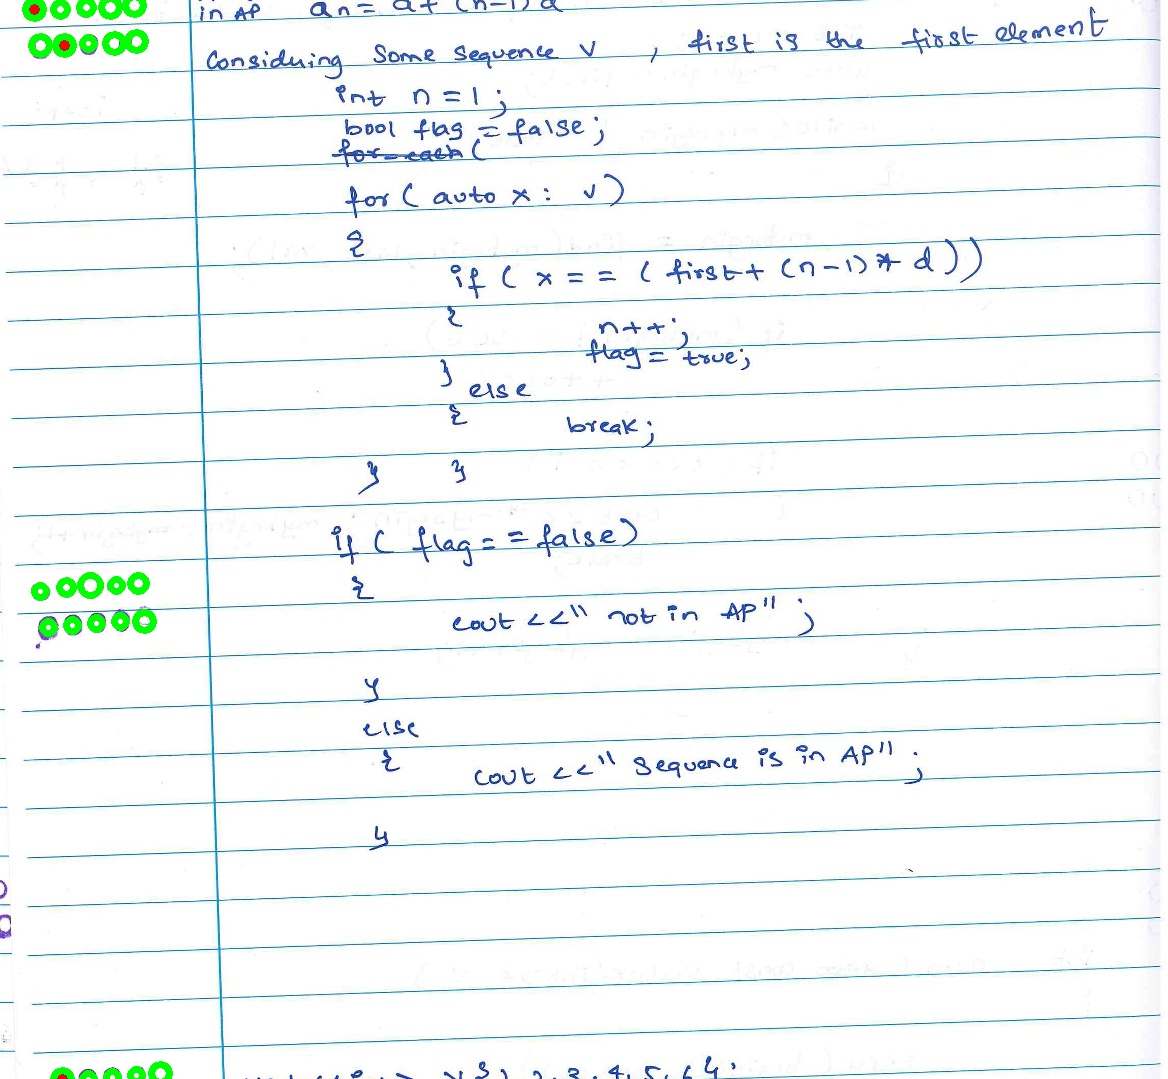 in AP an = a + (n-1) d
Considering Some sequence v , first is the first element
int n = 1 ;
bool flag = false ;
for each (
for ( auto x : v )
{
if ( x == ( first + (n-1) * d ))
{
n++ ;
flag = true ;
} else
{
break ;
} }
if ( flag == false )
{
cout << " not in AP" ;
}
else
{
cout << " Sequence is in AP" ;
}